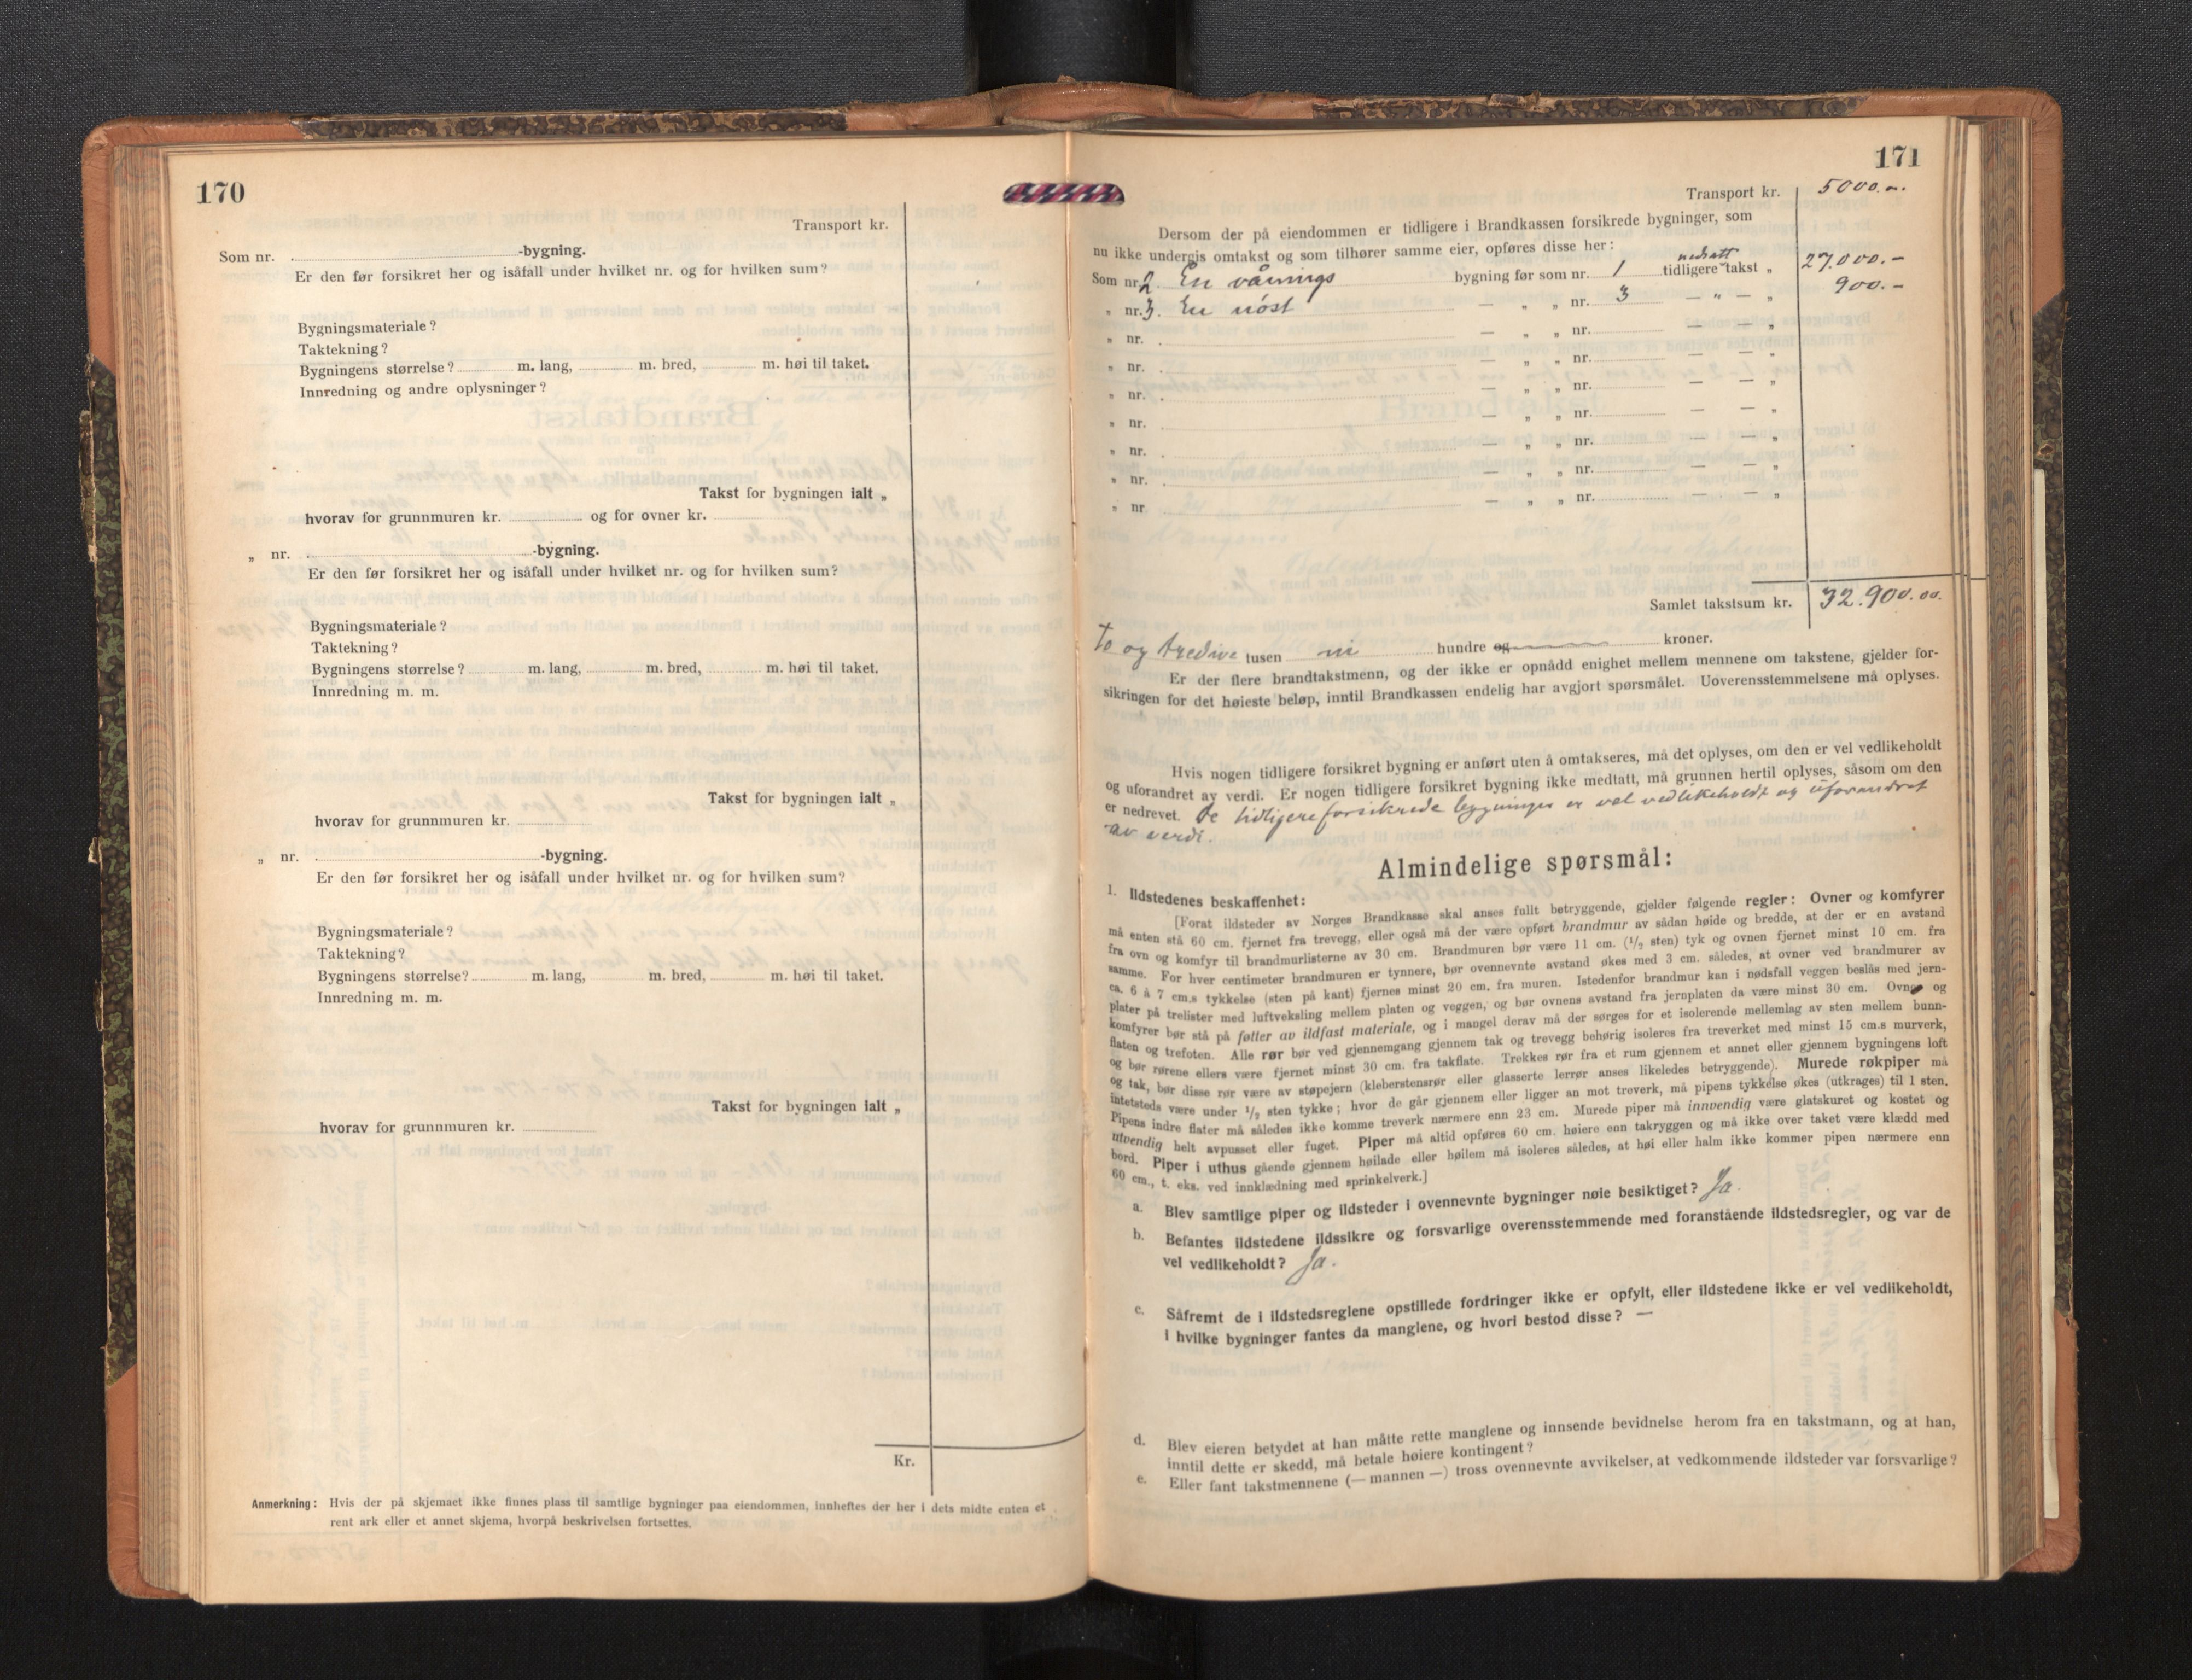 170
Transport kr.
Som nr. -bygning.
Er den før forsikret her og isåfall under hvilket nr. og for hvilken sum?
Bygningsmateriale?
Taktekning?
Bygningens størrelse? m. lang, m. bred, m. høi til taket.
Innredning og andre oplysninger?
Takst for bygningen ialt „
hvorav for grunnmuren kr. og for ovner kr.
„ nr. -bygning.
Er den før forsikret her og isåfall under hvilket nr. og for hvilken sum?
Bygningsmateriale?
Taktekning?
Bygningens størrelse? m. lang, m. bred, m. høi til taket.
Innredning m. m.
Takst for bygningen ialt „
hvorav for grunnmuren kr.
„ nr. -bygning.
Er den før forsikret her og isåfall under hvilket nr. og for hvilken sum?
Bygningsmateriale?
Taktekning?
Bygningens størrelse? m. lang, m. bred, m. høi til taket.
Innredning m. m.
Takst for bygningen ialt „
hvorav for grunnmuren kr.
Kr.
Anmerkning: Hvis der på skjemaet ikke finnes plass til samtlige bygninger paa eiendommen, innheftes der her i dets midte enten et
rent ark eller et annet skjema, hvorpå beskrivelsen fortsettes.
171
Transport kr. 5000.-
Dersom der på eiendommen er tidligere i Brandkassen forsikrede bygninger, som
nu ikke undergis omtakst og som tilhører samme eier, opføres disse her:
nedsatt
Som nr. 2. En vånings bygning før som nr. 1 tidligere takst „ 27.000.-
„ nr. 3. En nöst — „ „ nr. 3 — " — „ 900.-
„ nr. — „ „ nr. — — „
„ nr. — „ „ nr. — — „
„ nr. — „ „ nr. — — „
„ nr. — „ „ nr. — — „
„ nr. — „ „ nr. — — „
„ nr. — „ „ nr. — — „
„ nr — „ „ nr. — — „
Samlet takstsum kr. 32.900.00.
to og tredive tusen ni hundre og kroner.
Er der flere brandtakstmenn, og der ikke er opnådd enighet mellem mennene om takstene, gjelder for-
sikringen for det høieste beløp, inntil Brandkassen endelig har avgjort spørsmålet. Uoverensstemmelsene må oplyses.
Hvis nogen tidligere forsikret bygning er anført uten å omtakseres, må det oplyses, om den er vel vedlikeholdt
og uforandret av verdi. Er nogen tidligere forsikret bygning ikke medtatt, må grunnen hertil oplyses, såsom om den
er nedrevet. De tidligere forsikrede bygninger er vel vedlikeholdt og uforandret
av verdi.
Almindelige spørsmål:
1. Ildstedenes beskaffenhet:
[Forat ildsteder av Norges Brandkasse skal anses fullt betryggende, gjelder følgende regler: Ovner og komfyrer
må enten stå 60 cm. fjernet fra trevegg, eller også må der være opført brandmur av sådan høide og bredde, at der er en avstand
fra ovn og komfyr til brandmurlisterne av 30 cm. Brandmuren bør være 11 cm. (1/2 sten) tyk og ovnen fjernet minst 10 cm. fra
samme. For hver centimeter brandmuren er tynnere, bør ovennevnte avstand økes med 3 cm. således, at ovner ved brandmurer av
ca. 6 à 7 cm.s tykkelse (sten på kant) fjernes minst 20 cm. fra muren. Istedenfor brandmur kan i nødsfall veggen beslås med jern-
plater på trelister med luftveksling mellem platen og veggen, og bør ovnens avstand fra jernplaten da være minst 30 cm. Ovner og
komfyrer bør stå på føtter av ildfast materiale, og i mangel derav må der sørges for et isolerende mellemlag av sten mellem bunn-
flaten og trefoten. Alle rør bør ved gjennemgang gjennem tak og trevegg behørig isoleres fra treverket med minst 15 cm.s murverk,
og bør rørene ellers være fjernet minst 30 cm. fra takflate. Trekkes rør fra et rum gjennem et annet eller gjennem bygningens loft
og tak, bør disse rør være av støpejern (kleberstensrør eller glasserte lerrør anses likeledes betryggende). Murede røkpiper må
intetsteds være under 1/2 sten tykke; hvor de går gjennem eller ligger an mot treverk, må pipens tykkelse økes (utkrages) til 1 sten.
Pipens indre flater må således ikke komme treverk nærmere enn 23 cm. Murede piper må innvendig være glatskuret og kostet og
utvendig helt avpusset eller fuget. Piper må altid opføres 60 cm. høiere enn takryggen og må ikke over taket være klædd med
bord. Piper i uthus gående gjennem høilade eller høilem må isoleres således, at høi eller halm ikke kommer pipen nærmere enn
60 cm., t. eks. ved innklædning med sprinkelverk.]
a. Blev samtlige piper og ildsteder i ovennevnte bygninger nøie besiktiget? Ja.
b. Befantes ildstedene ildssikre og forsvarlige overensstemmende med foranstående ildstedsregler, og var de
vel vedlikeholdt? Ja.
c. Såfremt de i ildstedsreglene opstillede fordringer ikke er opfylt, eller ildstedene ikke er vel vedlikeholdt,
i hvilke bygninger fantes da manglene, og hvori bestod disse? —
d. Blev eieren betydet at han måtte rette manglene og innsende bevidnelse herom fra en takstmann, og at han,
inntil dette er skedd, må betale høiere kontingent?
e. Eller fant takstmennene (— mannen —) tross ovennevnte avvikelser, at vedkommende ildsteder var forsvarlige?